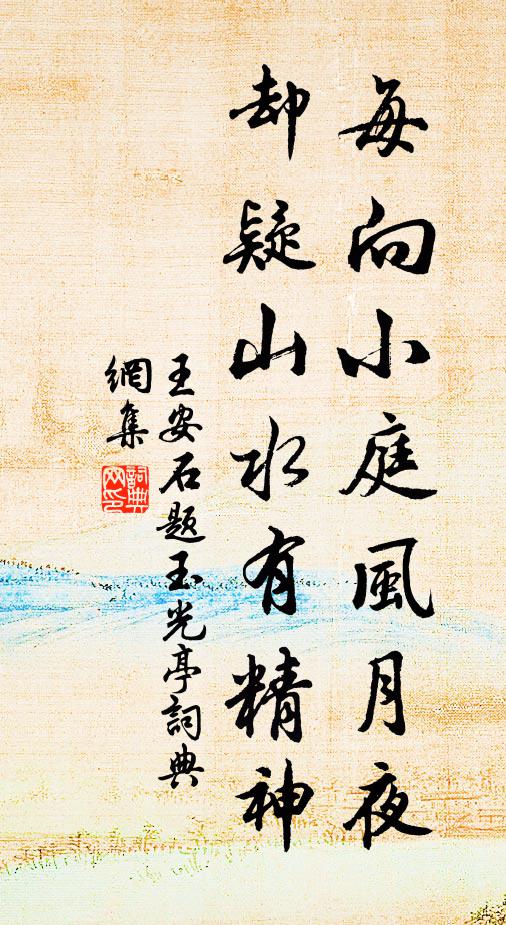 每向小庭風月夜
却疑山水有精神
王安石题玉光亭詞典
網集
詞典
网印